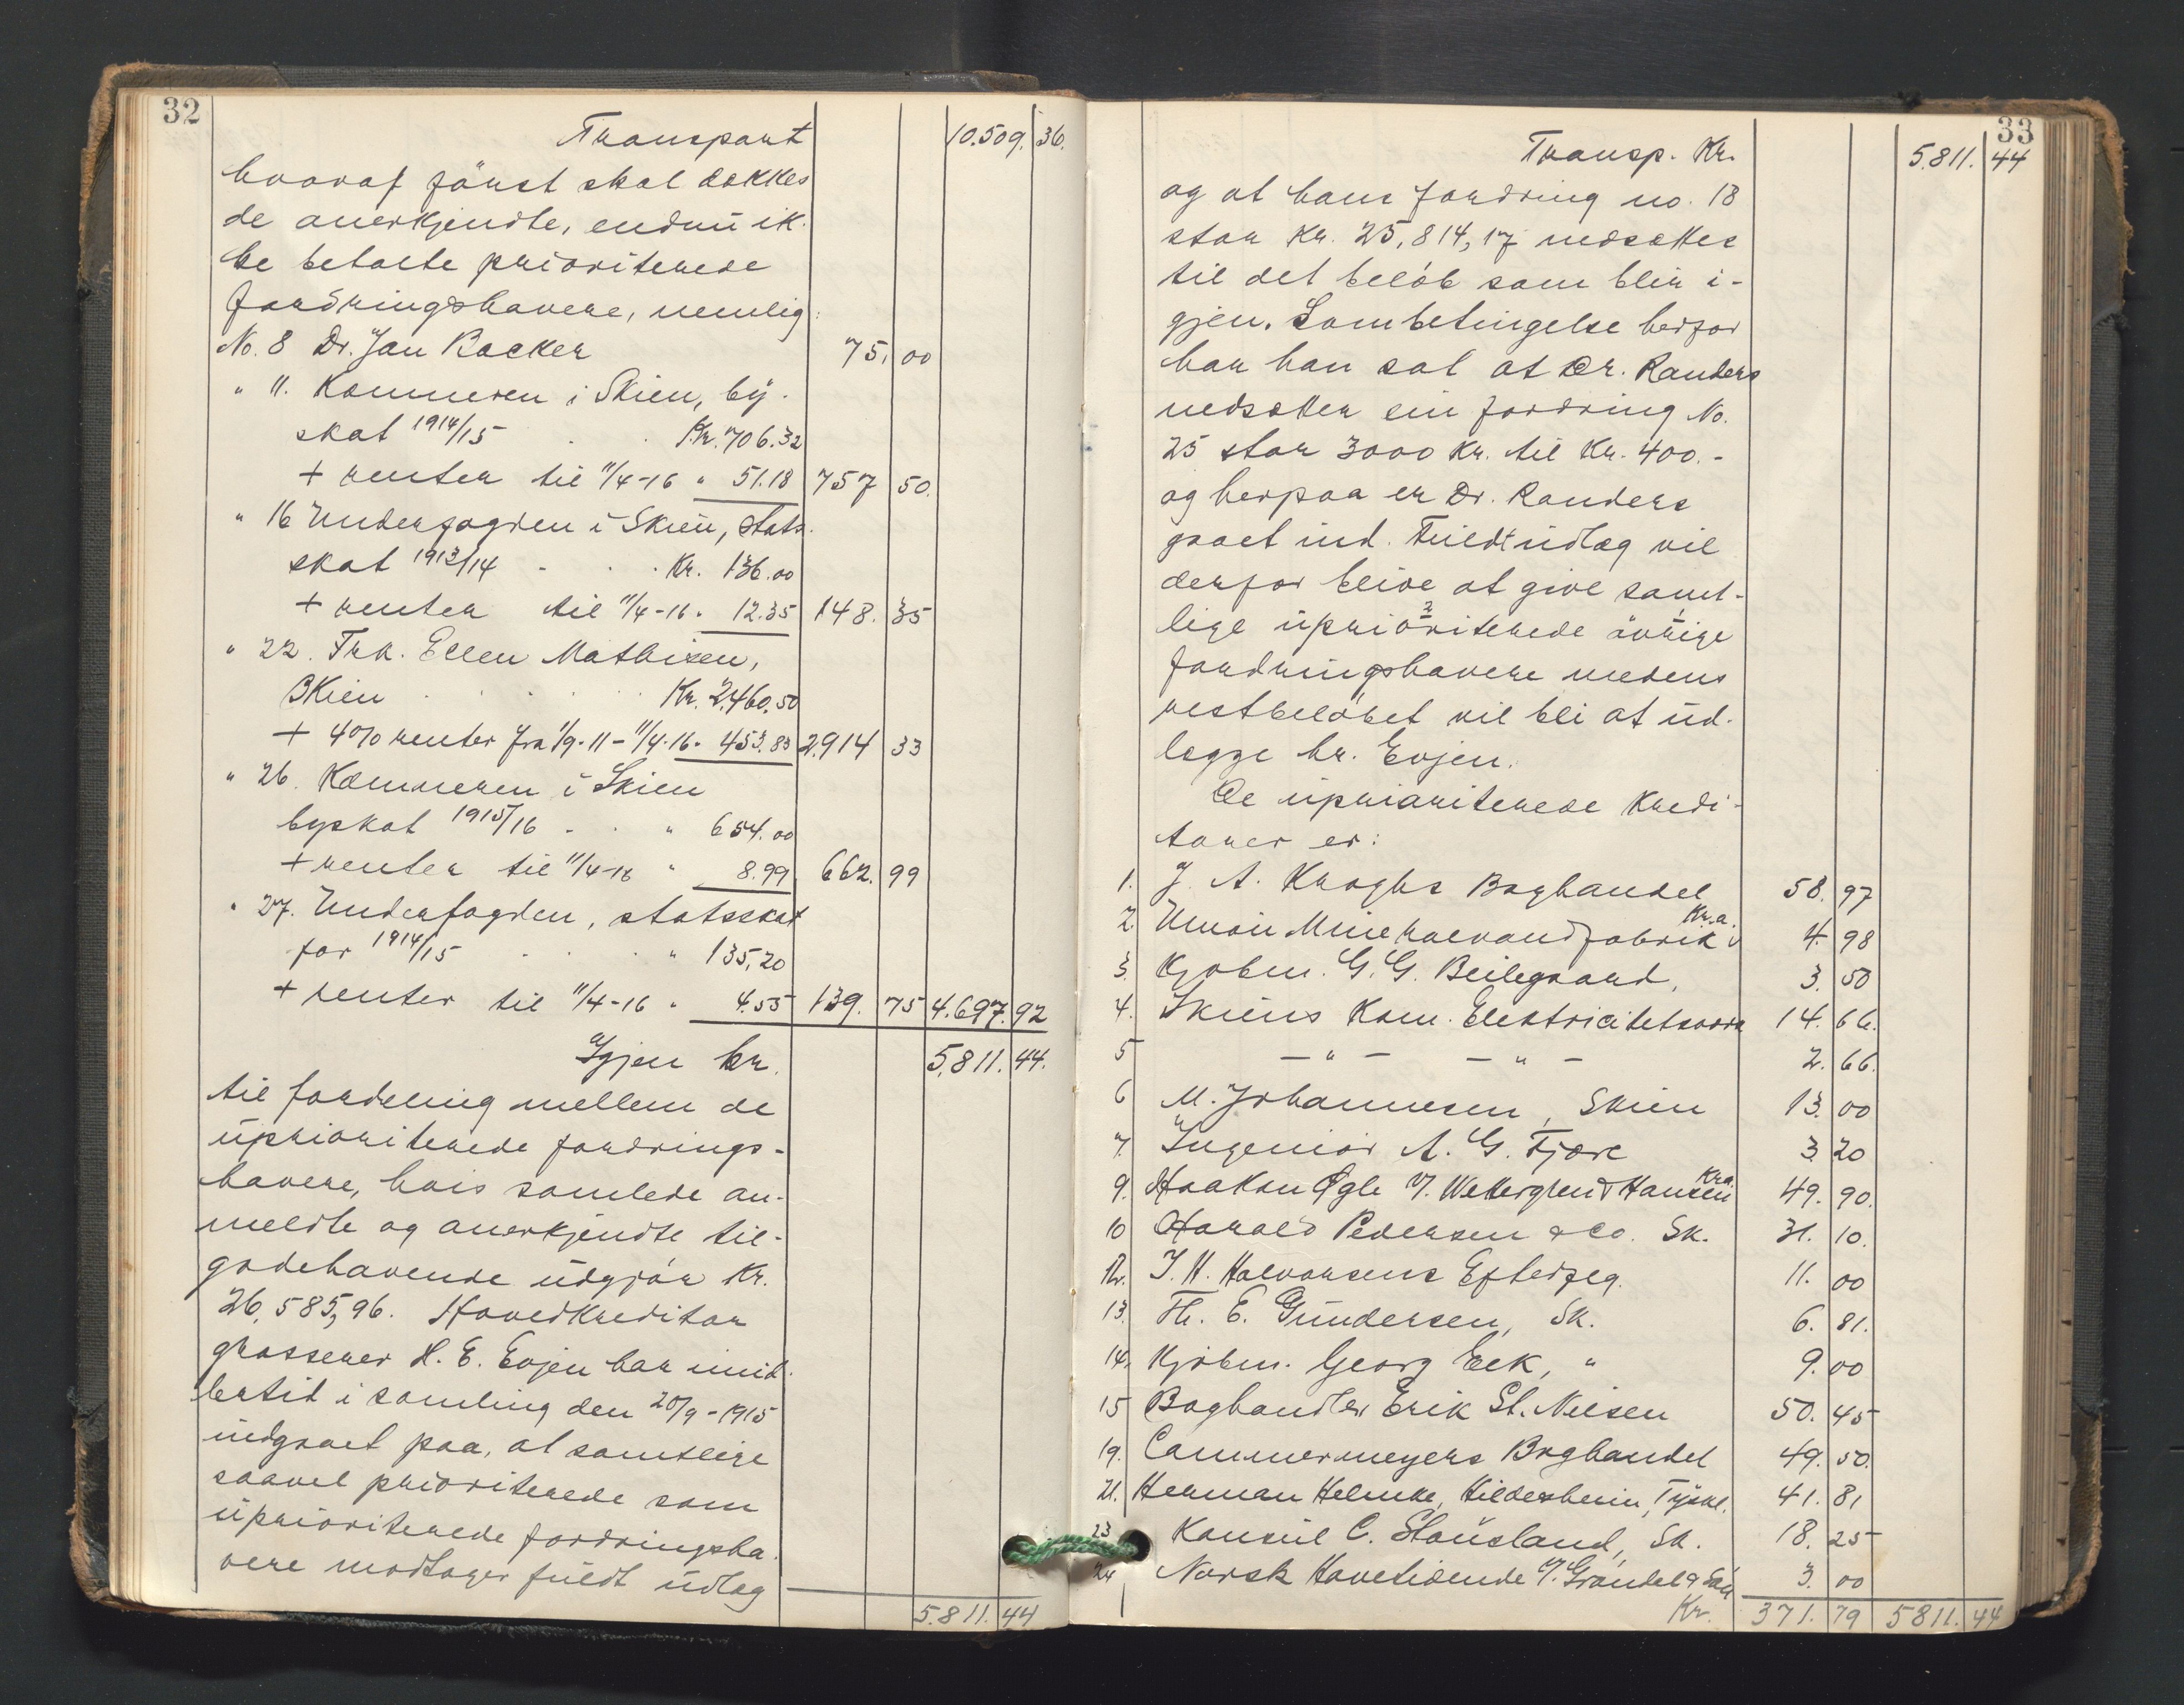 32
Transport 10.509. 36.
hvoraf först skal dækkes
de anerkjendte, endnu ik-
ke betalte prioriterede
fordringshavere, nemlig:
No. 8 Dr. Jan Backer 75. 00
" 11. Kæmneren i Skien, by-
skat 1914/15 . . Kr. 706.32
+ renter til 11/4-16 " 51.18 757 50.
" 16 Underfogden i Skien, stats-
skat 1913/14 - . . Kr. 136.00
+ renter til 11/4-16 " 12.35 148. 35
" 22. Frk. Ellen Mathisen,
Skien . . . . . Kr. 2,460.50
+ 4% renter fra 1/9-11 - 11/4-16 " 453.83 2914 33
" 26. Kæmneren i Skien
byskat 1915/16 - . . " 654.00
+ renter til 11/4-16 " 8.99 662. 99
" 27. Underfogden, statsskat
for 1914/15 . . . " 135,20
+ renter til 11/4-16 " 4.55 139. 75 4.697. 92
Igjen kr. 5,811. 44.
til fordeling mellem de
uprioriterede fordrings-
havere, hvis samlede an-
meldte og anerkjendte til-
godehavende udgjör Kr.
26,585,96. Hovedkreditor
grosserer H. E. Evjen har imid-
lertid i samling den 20/9-1915
indgaaet paa, at samtlige
saavel prioriterede som
uprioriterede fordringsha-
vere modtager fuldt udlæg
5.811. 44
33
Transp. Kr. 5.811. 44
og at hans fordring no. 18
stor Kr. 25,814,17 nedsættes
til det beløb som blir i-
gjen. Som betingelse herfor
har han sat at Dr. Randers
nedsætter sin fordring No.
25 stor 3000 Kr. til Kr. 400.-
og herpaa er Dr. Randers
gaaet ind. Fuldt udlæg vil
derfor blive at give samt-
lige uprioriterede övrige
fordringshavere medens
restbeløbet vil bli at ud-
lægge hr. Evjen.
De uprioriterede Kredi-
torer er:
1. J. A. Kroghs Boghandel 58. 97
2. Union Mineralvandfabrik Kr.a. 4. 98
3. Kjøbm. G. G. Beilegaard. 3. 50
4. Skiens Kom. Elektricitetsværk 14. 66.
5 - " - - " - 2. 66.
6 M. Johannesen, Skien 13. 00
7. Ingeniør A. G. Fjære 3. 20
9. Haakon Ogle v/. Wettergrend Hansen Kra. 49. 90.
10 Harald Pedersen & Co. Sk. 31. 10.
12. J. H. Halvorsens Efterflg. 11. 00
13. Th. E. Gundersen, Sk. 6. 81.
14. Kjøbm. Georg Eek, " 9. 00
15 Boghandler Erik St. Nilsen 50. 45
19. Cammermeyers Boghandel 49. 50.
21. Herman Helmke, Hildesheim, Tyskl. 41. 81
23 Konsul C. Stousland, Sk. 18. 25
24 Norsk Havetidende v/. Gröndal & Sön 3. 00
Kr. 371. 79 5811. 44